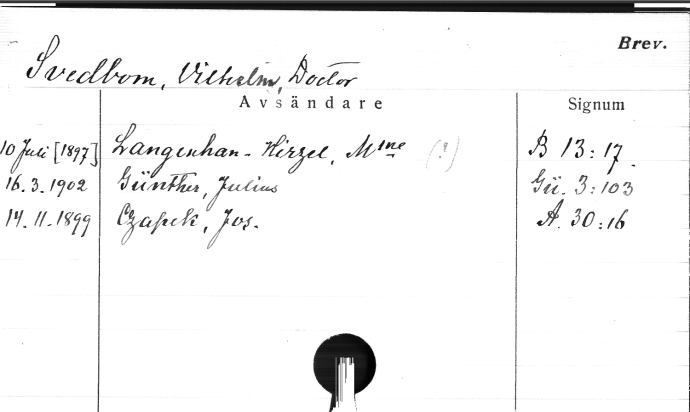 Brev.
Svedbom, Vilhelm, Doctor
Avsändare Signum
10 Juli [1897] Langenhan-Hirzel, Mme (?) B 13:17.
16.3.1902 Günther, Julius Gü. 3:103
14.11.1899 Czapek, Jos. A. 30:16